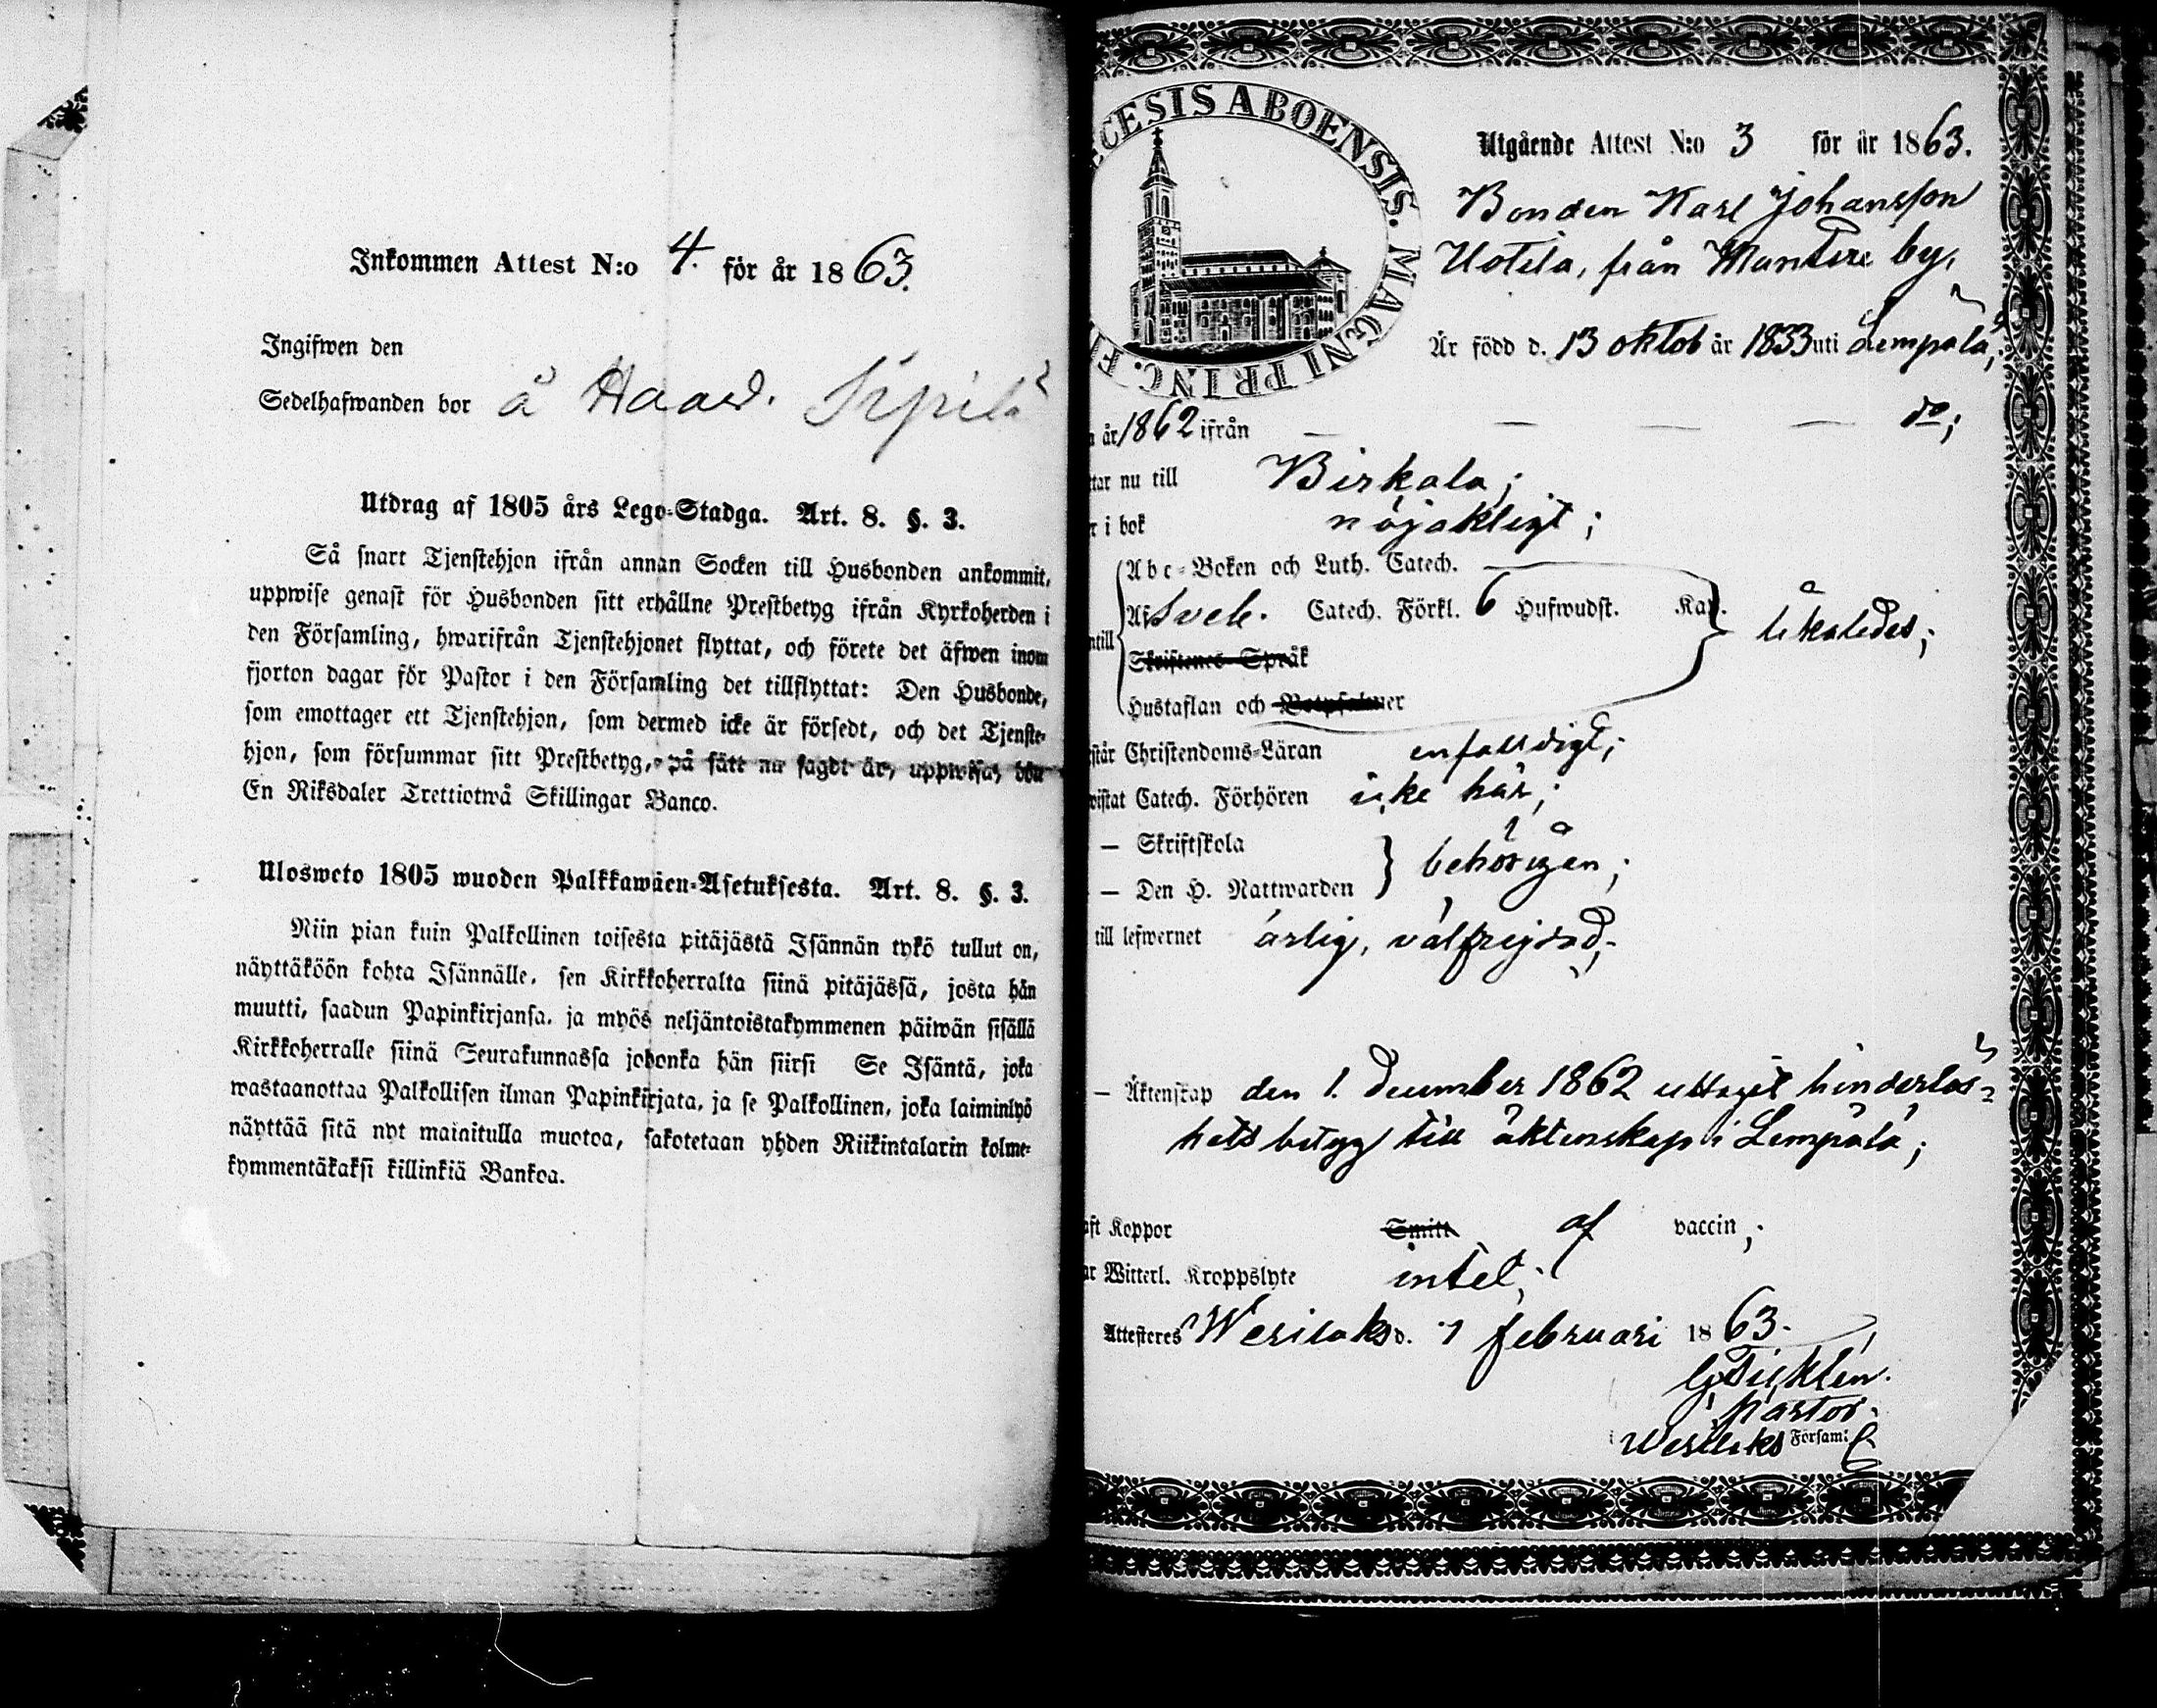 Inkommen Attest N:o 4. för år 1863.
Ingifwen den
Sedelhafwanden bor å Haavd. Sipilä
Utdrag af 1805 års Lego-Stadga. Art. 8. §. 3.
Så snart Tjenstehjon ifrån annan Socken till Husbonden ankommit,
uppwise genast för Husbonden sitt erhållne Prestbetyg ifrån Kyrkoherden i
den Församling, hwarifrån Tjenstehjonet flyttat, och förete det äfwen inom
fjorton dagar för Pastor i den Församling det tillflyttat: Den Husbonde,
som emottager ett Tjenstehjon, som dermed icke är försedt, och det Tjenste-
hjon, som försummar sitt Prestbetyg, på sätt nu sagdt är, uppwisa, böte
En Riksdaler Trettiotwå Skillingar Banco.
Ulosweto 1805 wuoden Palkkawäen-Asetuksesta. Art. 8. §. 3.
Niin pian kuin Palkollinen toisesta pitäjästä Isännän tykö tullut on,
näyttäköön kohta Isännälle, sen Kirkkoherralta siinä pitäjässä, josta hän
muutti, saadun Papinkirjansa, ja myös neljäntoistakymmenen päiwän sisällä
Kirkkoherralle siinä Seurakunnassa johonka hän siirsi Se Isäntä, joka
wastaanottaa Palkollisen ilman Papinkirjata, ja se Palkollinen, joka laiminlyö
näyttää sitä nyt mainitulla muotoa, sakotetaan yhden Riikintalarin kolme-
kymmentäkaksi killinkiä Bankoa.
CESIS ABOENSIS. MAGNI PRINC. F
Utgående Attest N:o 3 för år 1863.
Bonden Karl Johansson
Uotila, från Mantere by,
Är född d. 13 oktob år 1833 uti Lempälä,
år 1862 ifrån — — — — do;
tar nu till Birkala;
r i bok nöjaktligt;
Abc-Boken och Luth. Catech.
Af Sveb. Catech. Förkl. 6 Hufwudst. Kap.
ntill likaledes;
Skriftenes Språk
Hustaflan och Botpsalmer
står Christendoms-Läran enfaldigt;
wistat Catech. Förhören icke här;
— Skriftskola
behörigen;
— Den H. Nattwarden
till lefwernet ärlig, välfrejdad;
— Äktenskap den 1. December 1862 uttagit hinderlös-
hets betyg till äktenskap i Lempälä;
aft Koppor Smitt af vaccin;
ar Witterl. Kroppslyte intet;
Attesteras Wesilaks d. 1 februari 1863.
Pastor.
Wesilaks Försam: